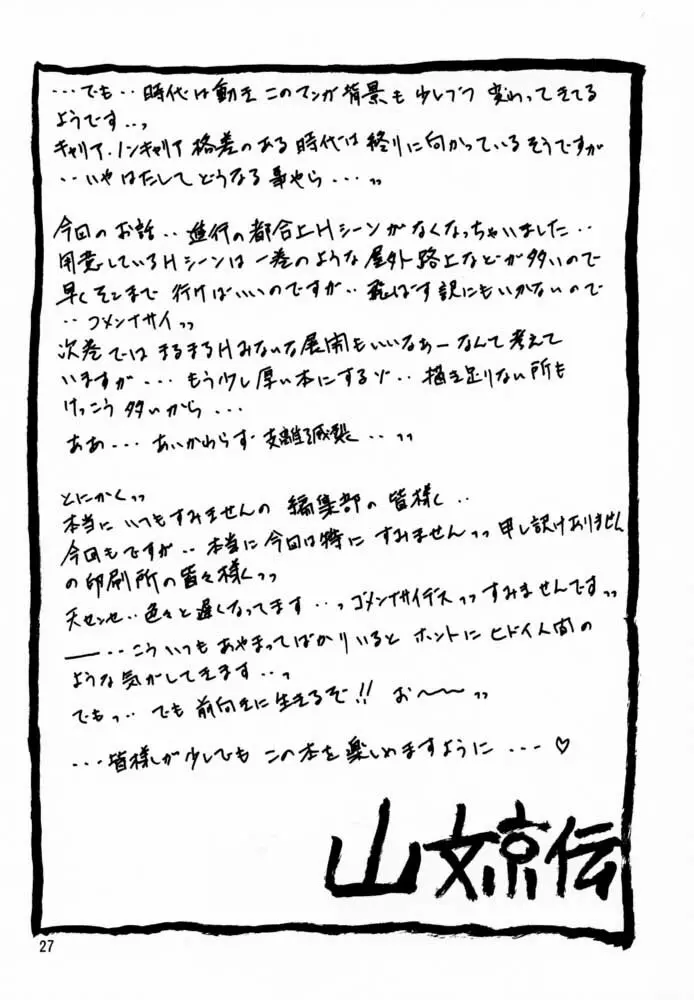 ・・・でも・・時代は動き このマンガ背景も少しづつ 変わってきてる
ようです・・っ
キャリア・ノンキャリア 格差のある 時代は 終りに向かっている そうですが
・・いや はたして どうなる 事やら ・・・っっ
今回の お話・・進行の都合上Hシーンが なくなっちゃいました・・
用意しているHシーンは 一巻のような 屋外 路上などが 多いので
早く そこまで 行けば いいのですが・・飛ばす訳にもいかないので
・・ゴメンナサイっっ
次巻では まるまるHみたいな展開もいいなぁーなんて考えて
いますが・・・ もう少し 厚い本にするゾ・・描き足りない所も
けっこう 多いから ・・・
ああ・・・ あいかわらず 支離滅裂 ・・っっ
とにかくっっ
本当に いつもすみませんの 編集部の 皆様く・・
今回もですが・・本当に今回は特に すみませんっっ 申し訳けありません
の印刷所の皆々様くっっ
天センセ・・色々と遅くなってます・・っゴメンナサイデスっっすみませんですっっ
――・・こう いつも あやまってばかりいると ホントに ヒドイ人間の
ような気がしてきます・・っ
でもっ・・でも 前向きに 生きるぞ!! お〜〜っっ
・・・皆様しが少しでも この本を楽しめますように ・・・♡
山文京伝
27